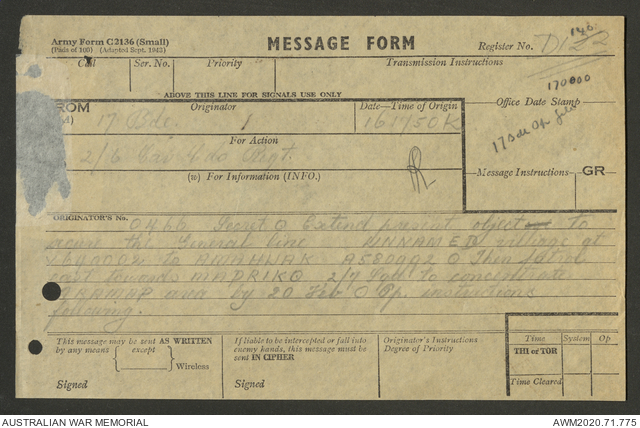 Army Form C2136 (Small)
(Pads of 100) (Adapted Sept. 1942)
MESSAGE FORM
Register No. D1
146.
Call Ser. No. Priority Transmission Instructions
170800
ABOVE THIS LINE FOR SIGNALS USE ONLY
FROM Originator Date—Time of Origin Office Date Stamp
17 Bde 161750K
17 Bde Op
For Action
2/6 Cav Cdo Regt.
(w) For Information (INFO.) Message Instructions GR
ORIGINATOR'S No.
O466 Secret O Extend present object to
secure the General line UNNAMED village at
to AMAHWAK A580992 O Then patrol
east towards MADRIKO 2/7 Sqd to concentrate
area by 20 Feb O Op. instructions
following.
This message may be sent AS WRITTEN
by any means except
Wireless
Signed
If liable to be intercepted or fall into
enemy hands, this message must be
sent IN CIPHER
Signed
Originator's Instructions
Degree of Priority
Time System Op
THI or TOR
Time Cleared
AUSTRALIAN WAR MEMORIAL AWM2020.71.775